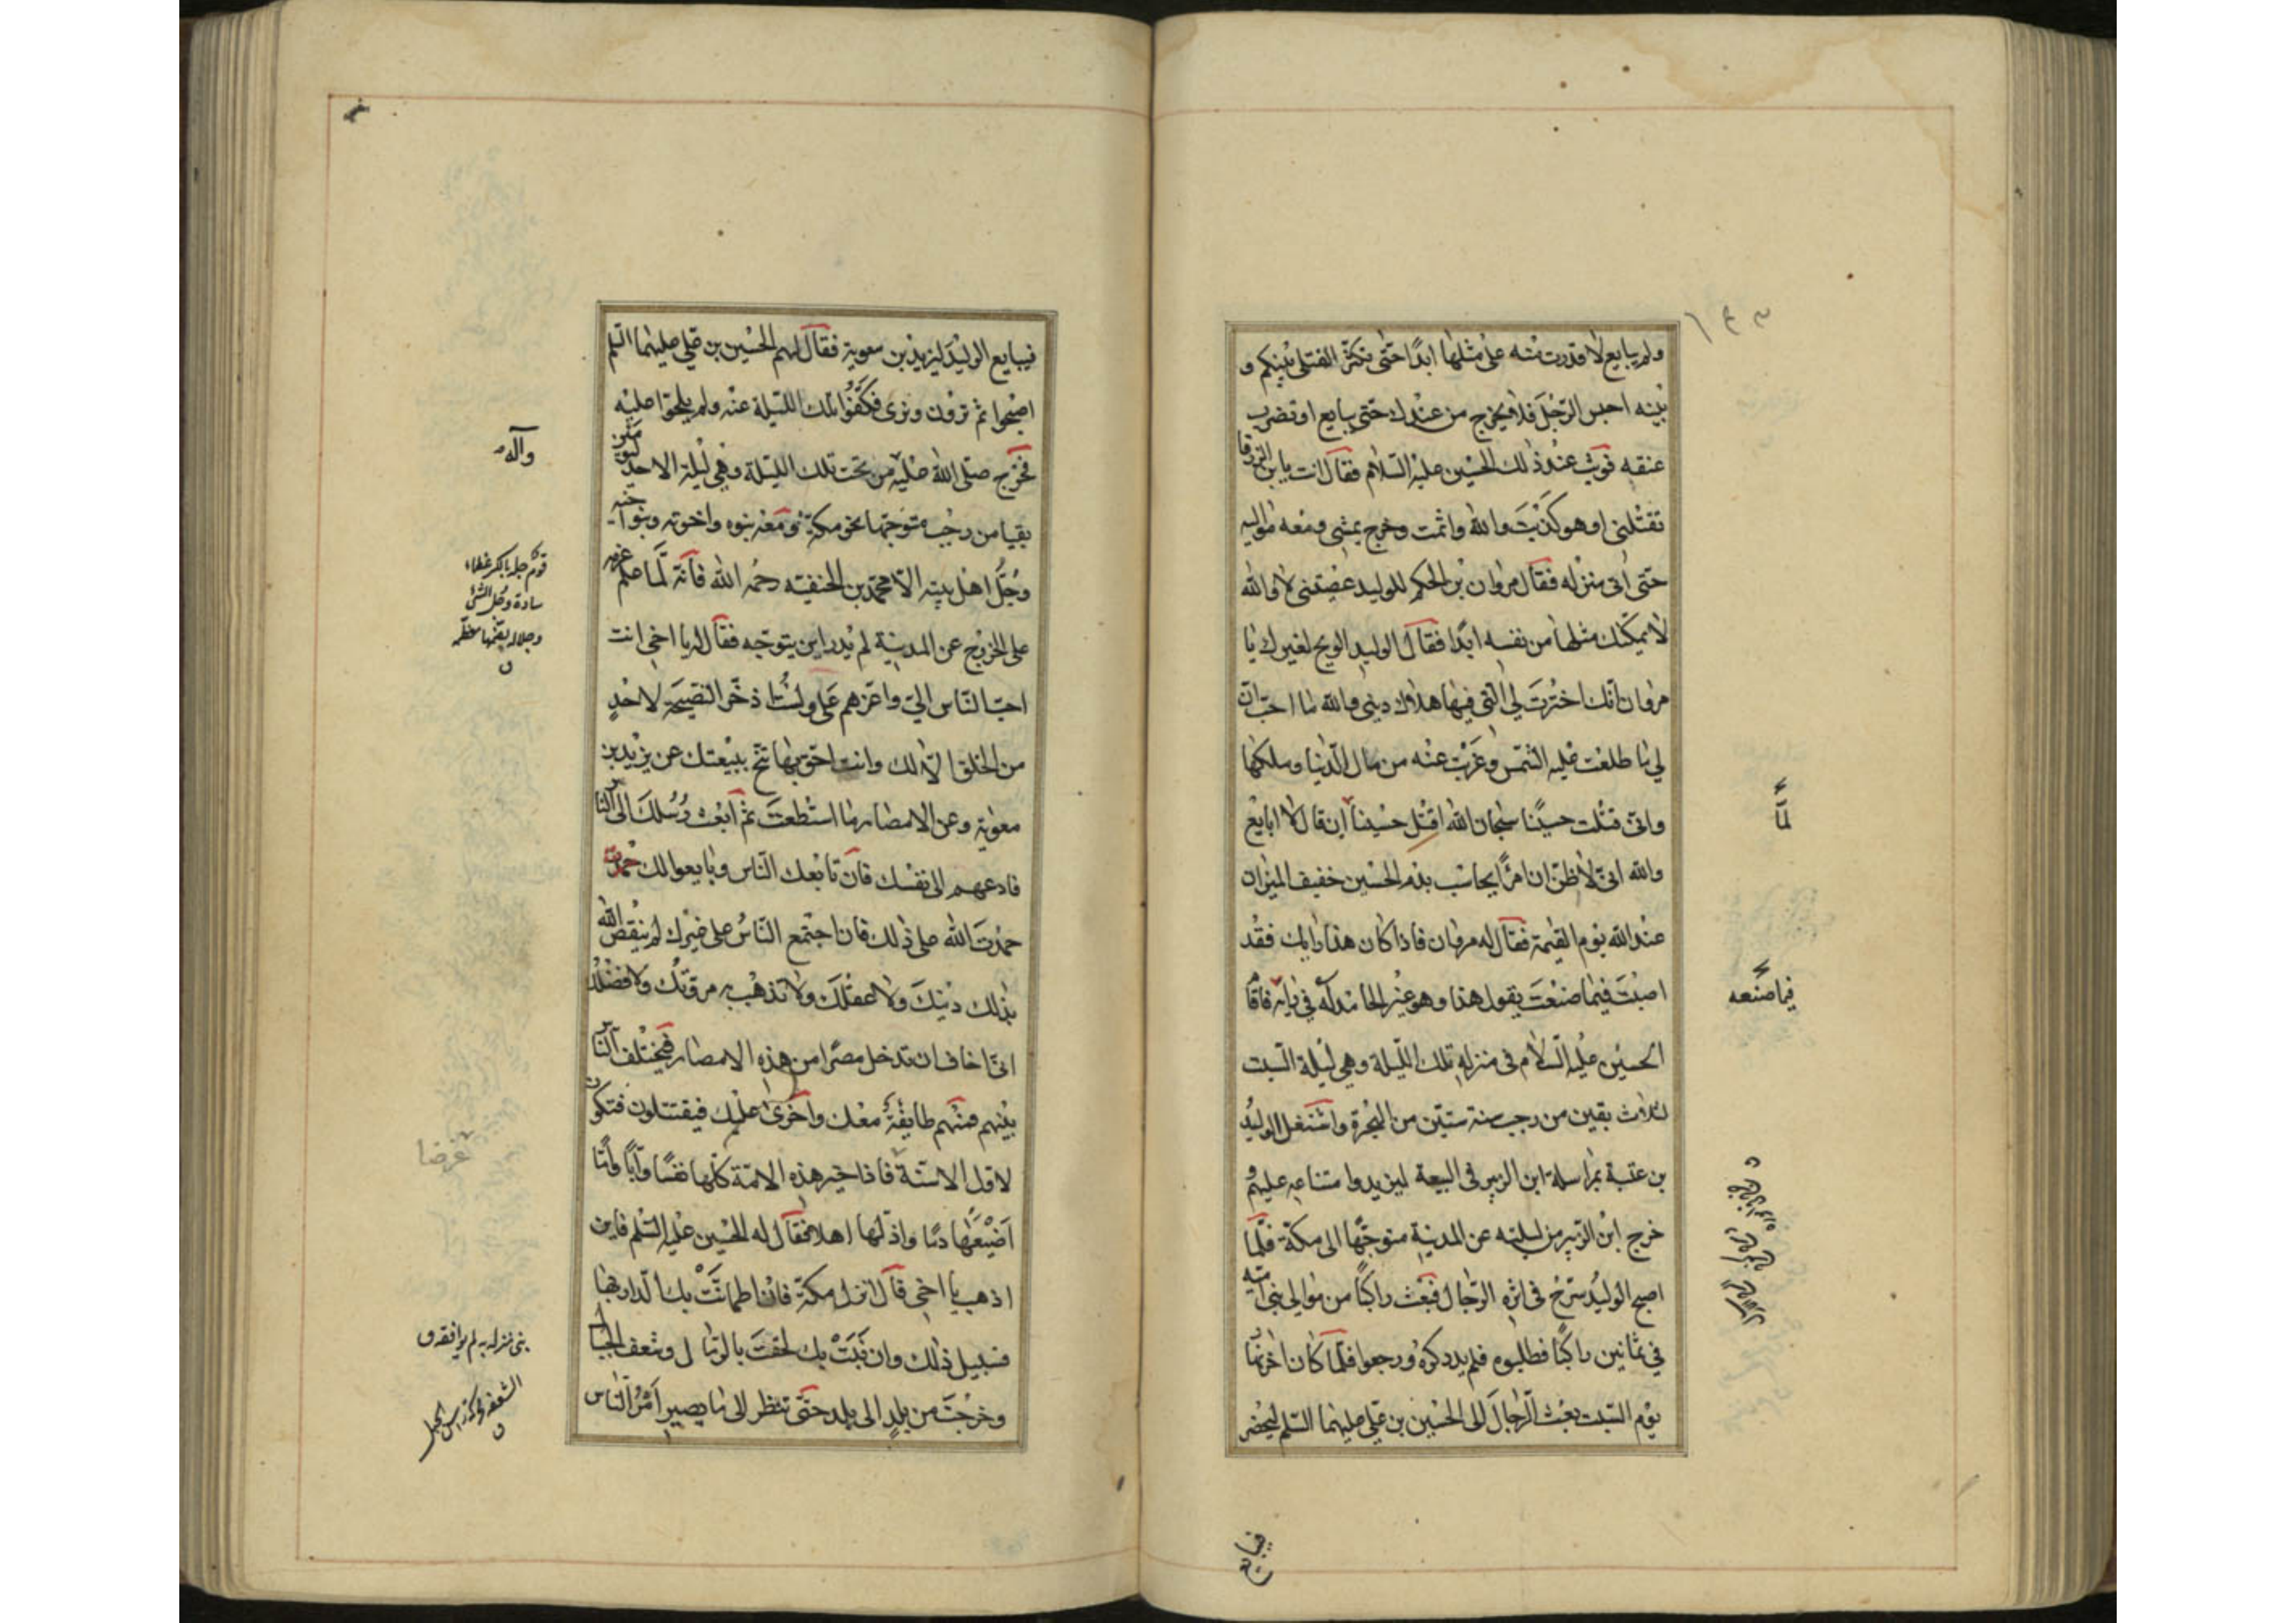 ١٤٣
ولم يبايع لا قدرت منه على مثلها ابدًا حتى تكثر القتلى بينكم و
بينه احبس الرّجل فلا يخرج من عندك حتى يبايع او تضرب
عنقه فوثب عند ذلك الحسين عليه السّلام فقال انت يا بن الزرقا
تقتلنى او هو كذبت والله واثمت وخرج يمشى ومعه مواليه
حتى اتى منزله فقال مروان بن الحكم للوليد عصيتنى لا والله
لا يمكّنك مثلها من نفسه ابدًا فقال الوليد الويح لغيرك يا
مروان انّك اخترت لي الّتي فيها هلاك ديني والله ما احبّ انّ
لي ما طلعت عليه الشّمس وغربت عنه من مال الدّنيا وملكها
وانّى قتلت حسينًا سبحان الله اقتل حسينًا ان قال لا ابايع
والله انّى لاظنّ ان امرًا يحاسب بدم الحسين خفيف الميزان
عند الله يوم القيمة فقال له مروان فاذا كان هذا رايك فقد
اصبت فيما صنعت يقول هذا وهو غير الحامد له في رايه فاقا
الحسين عليه السّلام فى منزله تلك اللّيلة وهي ليلة السّبت
لثلاث بقين من رجب سنة ستّين من الهجرة واشتغل الوليد
بن عتبة بمراسلة ابن الزبير فى البيعة ليزيد وامتناعه عليهم و
خرج ابن الزّبير من ليلته عن المدينة متوجّهًا الى مكّة فلمّا
اصبح الوليد سرّح فى اثره الرّجال فبعث راكبًا من موالي بنى اميّة
في ثمانين راكبًا فطلبوه فلم يدركوه ورجعوا فلمّا كان اخر نهار
يوم السّبت بعث الرّجال الى الحسين بن علي عليهما السّلم ليحضر
لمّا
فيما صنعه
فيبايع
فيبايع الوليد ليزيد بن معوية فقال لهم الحسين بن علي عليهما السّلم
اصبحوا ثم ترون ونرى فكفّوا تلك اللّيلة عنه ولم يلحّوا عليه
فخرج صلى الله عليه من تحت تلك اللّيلة وهي ليلة الاحد ليومين
بقيا من رجب متوجّها نحو مكّة ومعه بنوه واخوته وبنو اخيه
وجُلّ اهل بيته الّا محمّد بن الحنفيّه رحمه الله فانّه لمّا علم عزمه
على الخروج عن المدينة لم يدر اين يتوجّه فقال له يا اخى انت
احبّ النّاس الىّ واعزّهم علىّ ولستُ اذخر النّصيحة لاحدٍ
من الخلق الّا لك وانت احقّ بها تنحّ ببيعتك عن يزيد بن
معوية وعن الامصار ما استطعت ثمّ ابعث رُسُلك الى النّاس
فادعهم الى نفسك فان تابعك النّاس وبايعوا لك
حمدتَ الله على ذلك فان اجتمع النّاسُ على غيرك لم ينقص الله
بذلك دينك ولا عقلك ولا تذهب به مروّتك ولا فضلك
انّى اخاف ان تدخل مصرًا من هذه الامصار فيختلف النّاس
بينهم فمنهم طايفة معك واخرى عليك فيقتتلون فتكون
لاوّل الاسنّة فاذا خير هذه الامّة كلّها نفسًا وابًا وامًّا
اضيعها دمًا واذلّها اهلا فقال له الحسين عليه السّلم فاين
اذهب يا اخى قال انزل مكّة فان اطمانّت بك الدّار بها
فسبيل ذلك وان نَبَتْ بك لحقت بالرّمال وشعف الجبال
وخرجت من بلدٍ الى بلد حتّى تنظر الى ما يصير امر النّاس
وآله
قوم جلة بالكسر عظماء
سادة وجل الشئ
وجلاله بضمّها معظمه
ق
غرضا
نبى منزله به لم يوافقه ق
الشعفة محركة راس الجبل
ق